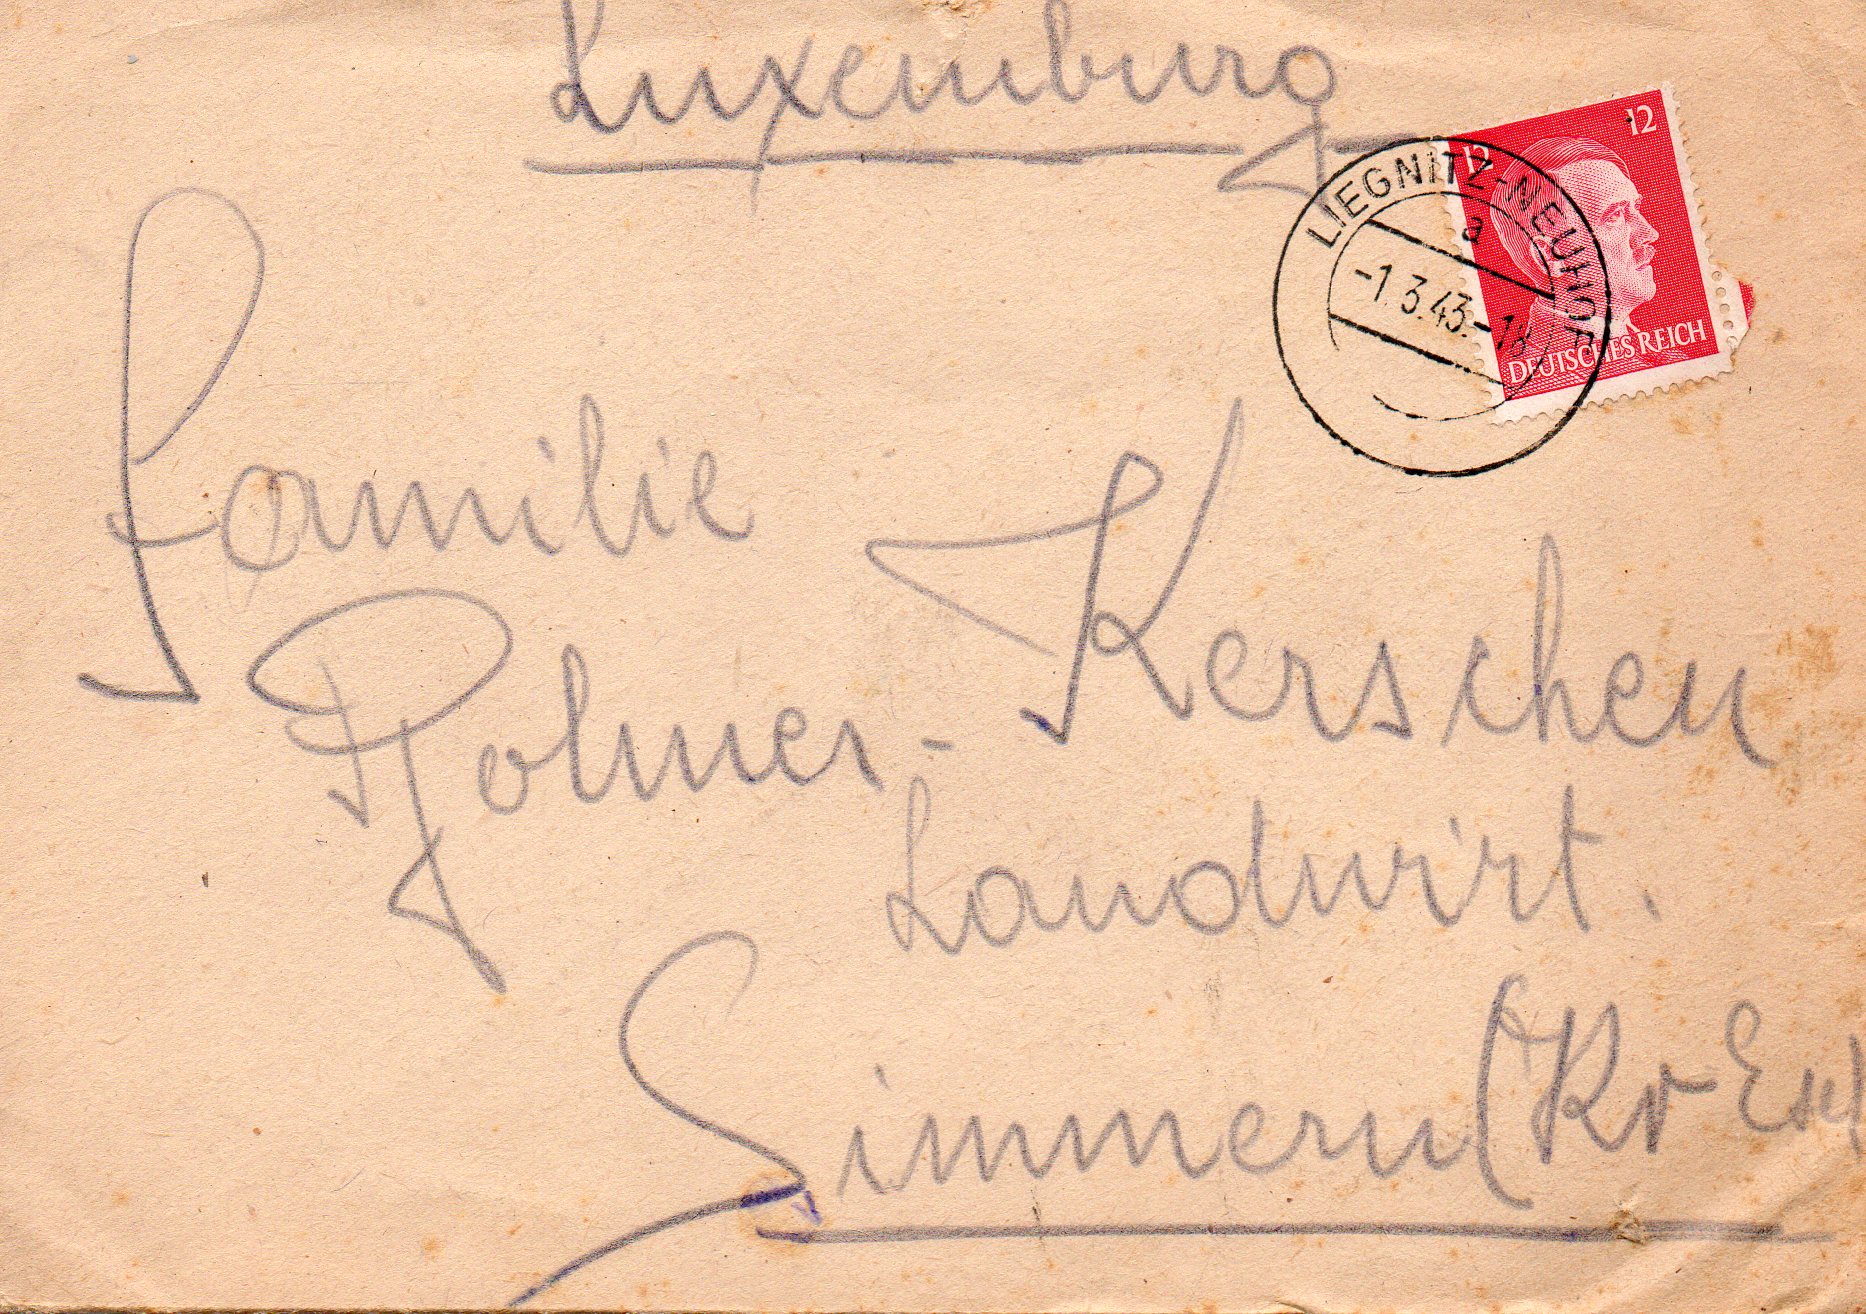 Luxemburg
12 12
LIEGNITZ-NEUHOF
a
-1.3.43.-18
DEUTSCHES REICH
Familie
Kerschen
Landwirt.
Simmern (Kr Esch)